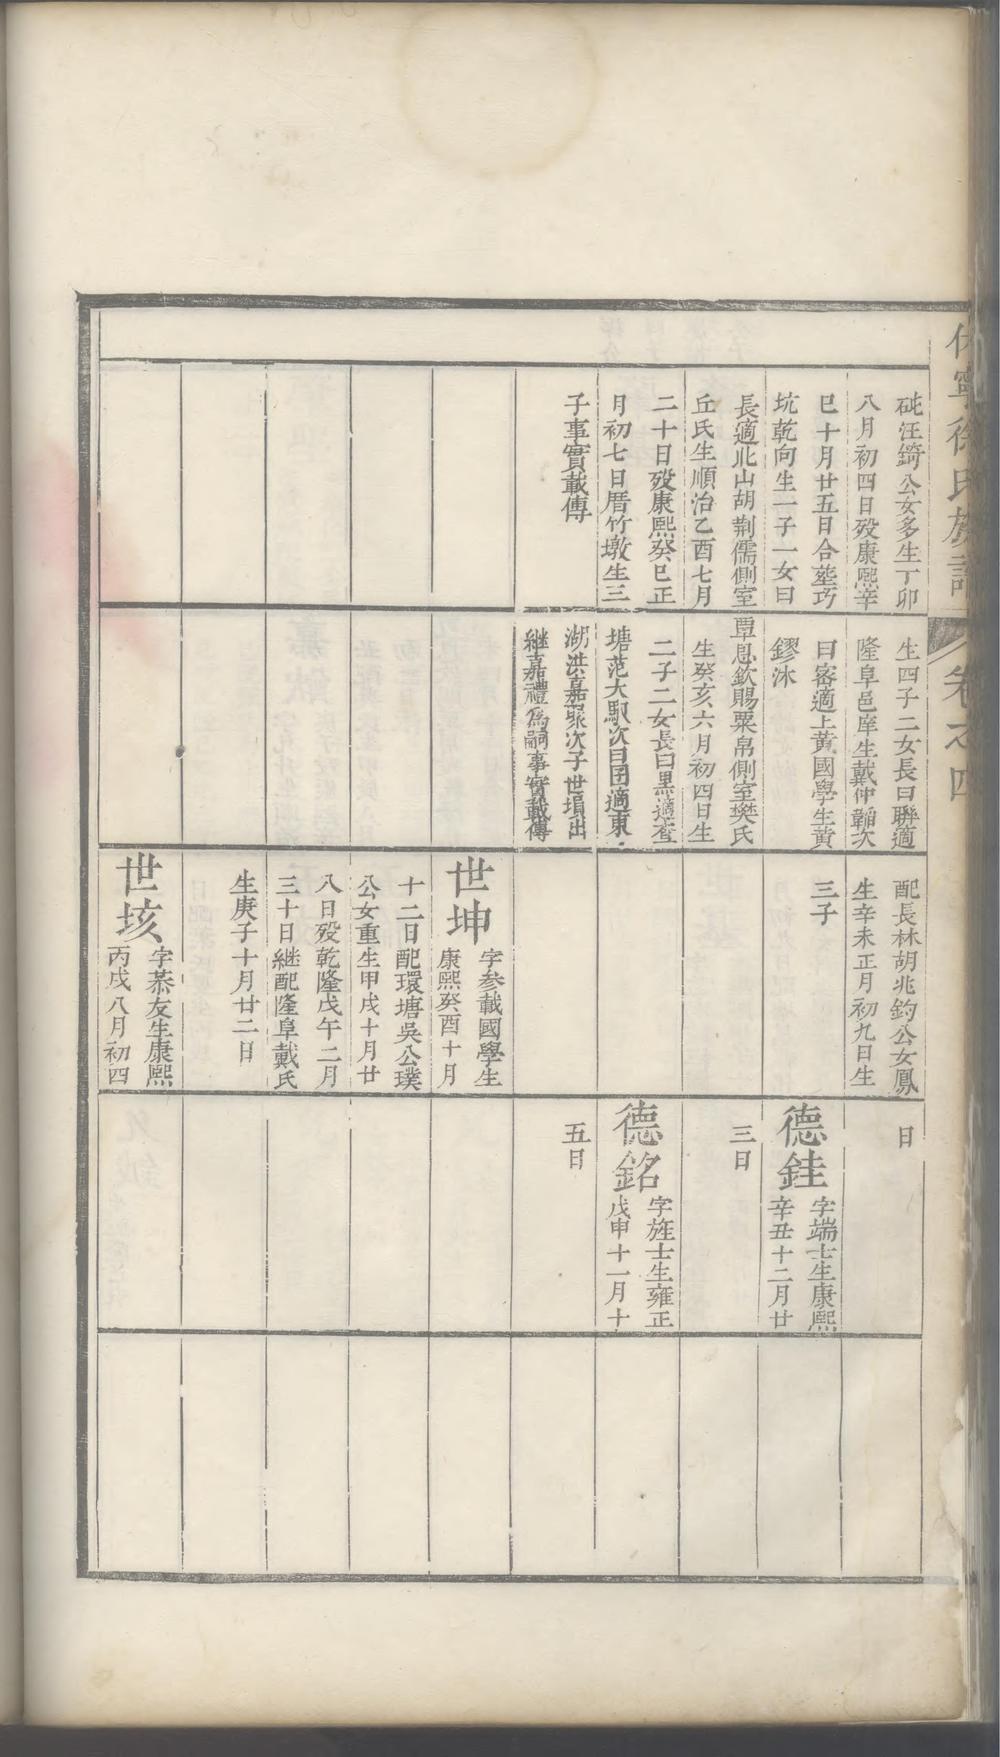 休寧徐氏族譜 卷之四
砒汪錡公女多生丁卯
八月初四日歿康熙辛
巳十月廿五日合塟巧
坑乾向生一子一女曰
長適北山胡荆儒側室
丘氏生順治乙酉七月
二十日歿康熙癸巳正
月初七日厝竹墩生三
子事實載傳
生四子二女長曰聯適
隆阜邑庠生戴仲韜次
曰容適上黄國學生黄
鏐沐
覃恩欽賜粟帛側室樊氏
生癸亥六月初四日生
二子二女長曰黒適查
塘范大馭次曰囝適東
湖洪嘉聚次子世塤出
継嘉禮爲嗣事實載傳
配長林胡兆鈞公女鳳
生辛未正月初九日生
三子
世坤
字参載國學生
康熙癸酉十月
十二日配環塘吳公璞
公女重生甲戌十月廿
八日歿乾隆戊午二月
三十日継配隆阜戴氏
生庚子十月廿二日
世垓
字恭友生康熙
丙戌八月初四
日
德銈
字端士生康熙
辛丑十二月廿
三日
德銘
字旌士生雍正
戊申十一月十
五日